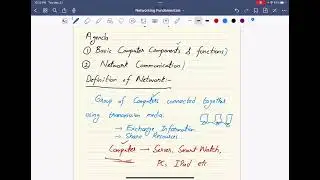 Networking Fundamentals
Agenda
① Basic Computer Components & functions)
② Network Communication)
Definition of Network:-
Group of Computers connected together
using transmission media.
→ Exchange Information
→ Share Resources
Computer → Server, Smart Watch,
PC, IPad etc